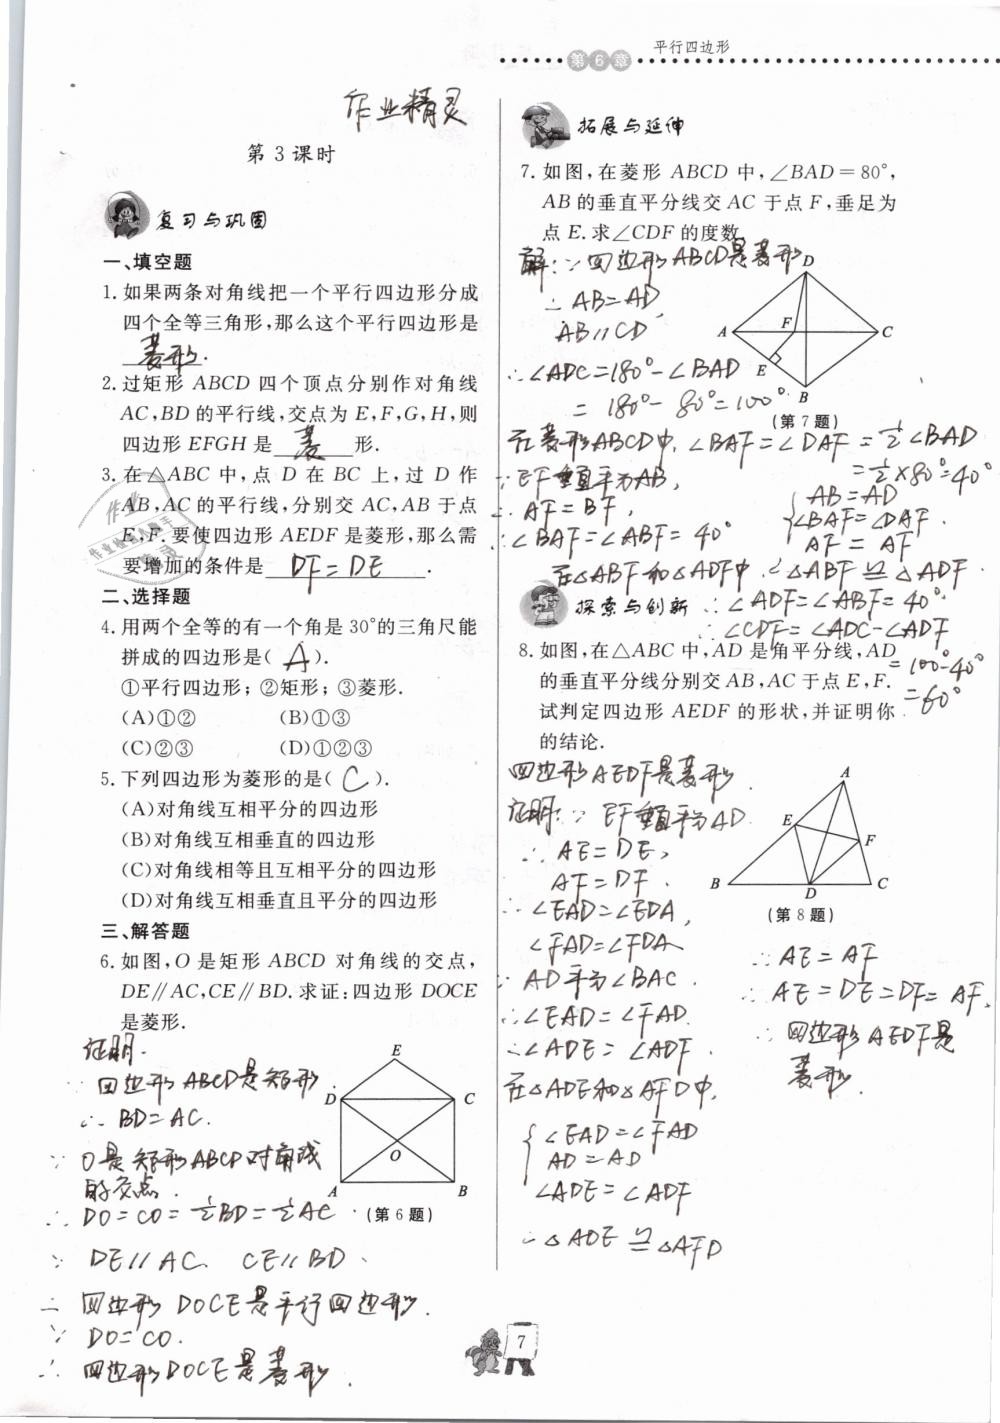 第6章 平行四边形
作业精灵
第 3 课时
复习与巩固
一、填空题
1. 如果两条对角线把一个平行四边形分成
四个全等三角形,那么这个平行四边形是
菱形.
2. 过矩形 ABCD 四个顶点分别作对角线
AC,BD 的平行线,交点为 E,F,G,H,则
四边形 EFGH 是 菱 形.
3. 在△ABC 中,点 D 在 BC 上,过 D 作
AB,AC 的平行线,分别交 AC,AB 于点
E,F. 要使四边形 AEDF 是菱形,那么需
要增加的条件是 DF=DE .
二、选择题
4. 用两个全等的有一个角是 30°的三角尺能
拼成的四边形是( A ).
①平行四边形; ②矩形; ③菱形.
(A)①② (B)①③
(C)②③ (D)①②③
5. 下列四边形为菱形的是( C ).
(A)对角线互相平分的四边形
(B)对角线互相垂直的四边形
(C)对角线相等且互相平分的四边形
(D)对角线互相垂直且平分的四边形
三、解答题
6. 如图,O 是矩形 ABCD 对角线的交点,
DE∥AC,CE∥BD. 求证:四边形 DOCE
是菱形.
证明:
∵ 四边形 ABCD是矩形
∴ BD=AC.
∵ O是矩形ABCD对角线
的交点.
∴ DO=CO=½BD=½AC.
∵ DE∥AC、CE∥BD、
∴ 四边形 DOCE是平行四边形.
∵ DO=CO.
∴ 四边形DOCE是菱形
E
D C
O
A B
(第 6 题)
拓展与延伸
7. 如图,在菱形 ABCD 中,∠BAD=80°,
AB 的垂直平分线交 AC 于点 F,垂足为
点 E. 求∠CDF 的度数.
解:∵四边形ABCD是菱形
∴ AB=AD,
AB∥CD
∴∠ADC=180°-∠BAD
=180°-80°=100°.
D
A F C
E
B
(第 7 题)
在菱形ABCD中,∠BAF=∠DAF=½∠BAD
=½×80°=40°
∵EF垂直平分AB,
∴ AF=BF,
∴∠BAF=∠ABF=40°
在△ABF和△ADF中
AB=AD
∠BAF=∠DAF.
AF=AF
∴△ABF≌△ADF.
∴∠ADF=∠ABF=40°.
∴∠CDF=∠ADC-∠ADF
=100°-40°
=60°
探索与创新
8. 如图,在△ABC 中,AD 是角平分线,AD
的垂直平分线分别交 AB,AC 于点 E,F.
试判定四边形 AEDF 的形状,并证明你
的结论.
四边形AEDF是菱形.
证明:∵ EF垂直平分AD
∴ AE=DE,
AF=DF.
∴∠EAD=∠EDA,
∠FAD=∠FDA
∵ AD平分∠BAC.
∴∠EAD=∠FAD.
∴∠ADE=∠ADF.
在△ADE和△AFD中,
∠EAD=∠FAD
AD=AD
∠ADE=∠ADF
∴△ADE≌△AFD
A
E F
B D C
(第 8 题)
∴ AE=AF
∴ AE=DE=DF=AF.
∴ 四边形AEDF是
菱形.
7